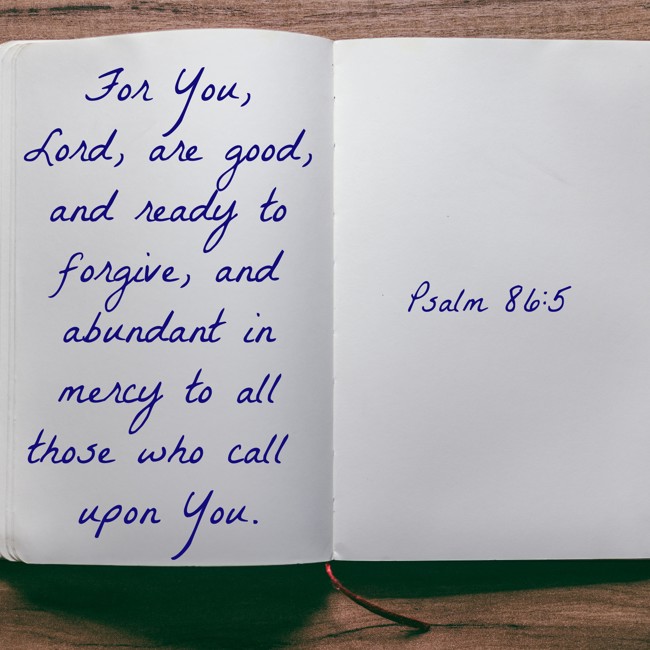 For You,
Lord, are good,
and ready to
forgive, and
abundant in
mercy to all
those who call
upon You.
Psalm 86:5